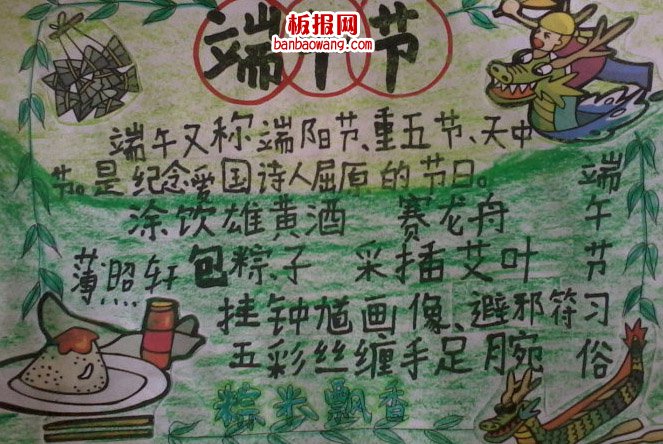 板报网
banbaowang.com
端午节
端午又称端阳节、重五节、天中
节。是纪念爱国诗人屈原的节日。
涂饮雄黄酒 赛龙舟
薄照轩 包粽子 采插艾叶
挂钟馗画像、避邪符
五彩丝缠手足腕
端午节习俗
粽米飘香